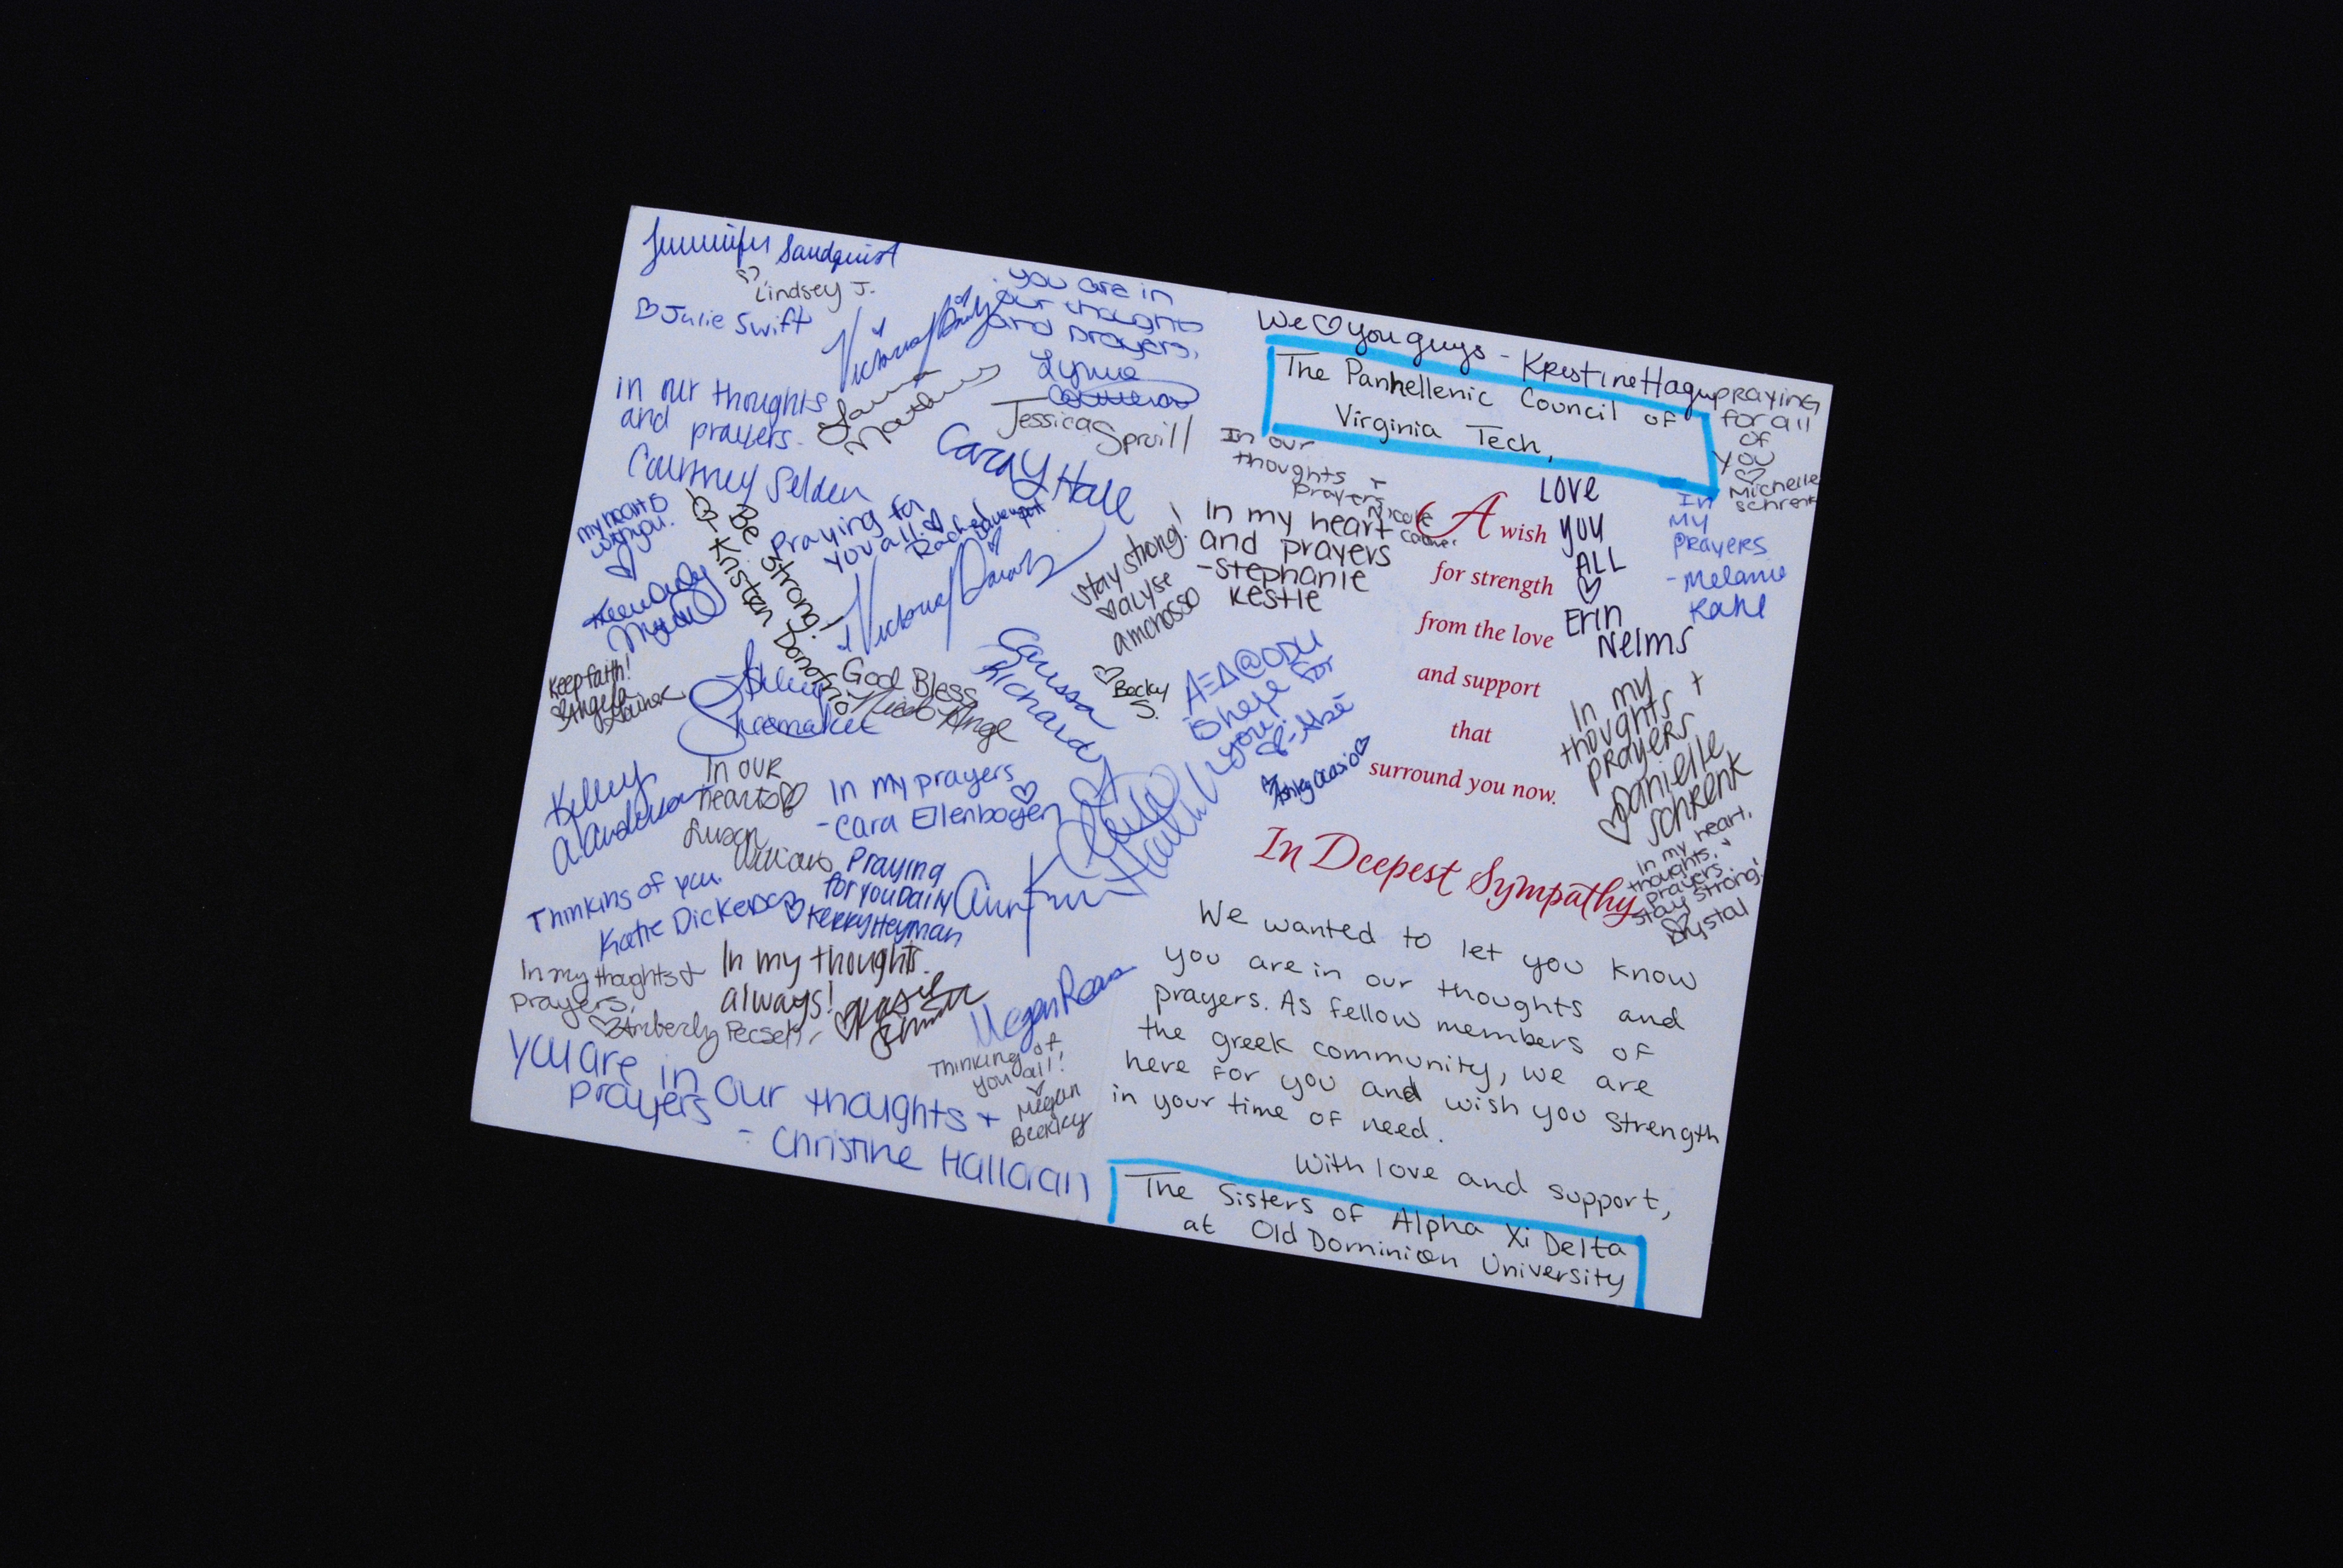 Jennifer Sandquist
♡ Lindsey J.
♡ Julie Swift
you are in
our thoughts
and prayers,
Lynne
in our thoughts
and prayers.
Courtney Selden
Laura
Jessica Spruill
Carly Hall
my heart is
with you.
♡
Be strong!
♡- Kristen Donofrio
Praying for
you all! ♡
Rachel
Davenport
Keep faith!
♡ Angela
God Bless
Nicole Ange
Shoemaker
Carissa
Richard
Kelley
A. Anderson
In our
hearts ♡
Susan
Williams
In my prayers
- Cara Ellenbogen ♡
Thinking of you.
Katie Dickerson
Praying
for you Daily
♡ Kerry Heyman
Ann
In my thoughts +
prayers.
♡ Amberly
In my thoughts
always!
Megan
Thinking of
you all!
♡
Megan
You are in our thoughts +
prayers
- Christine Halloran
We ♡ you guys - Kristine Hagu
The Panhellenic Council of
Virginia Tech,
praying
for all
of
you
♡
Michelle
Schrenk
In our
thoughts +
prayers
Nicole
In my heart
and prayers
- Stephanie
Kestle
Stay strong!
♡ alyse
amoroso
♡
Becky
S.
ΑΞΔ@ODU
is here for
you
♡ Ashley Ocasio ♡
A wish
for strength
from the love
and support
that
surround you now.
Love
you
ALL
♡
Erin
Nelms
In
my
prayers
- Melanie
Kahl
In my
thoughts +
prayers
♡ Danielle
Schrenk
In my heart,
thoughts, +
prayers
stay strong!
♡
Crystal
In Deepest Sympathy
We wanted to let you know
you are in our thoughts and
prayers. As fellow members of
the greek community, we are
here for you and wish you strength
in your time of need.
With love and support,
The Sisters of Alpha Xi Delta
at Old Dominion University